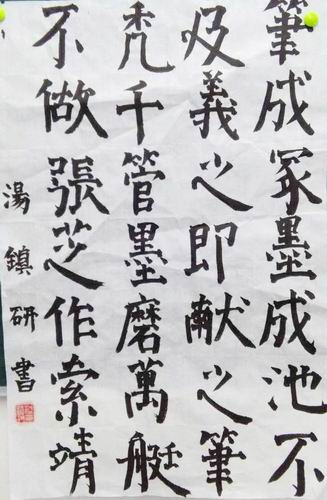 筆成冢墨成池不
及義之即献之筆
秃千管墨磨萬艇
不做張芝作索靖
湯鎮研書